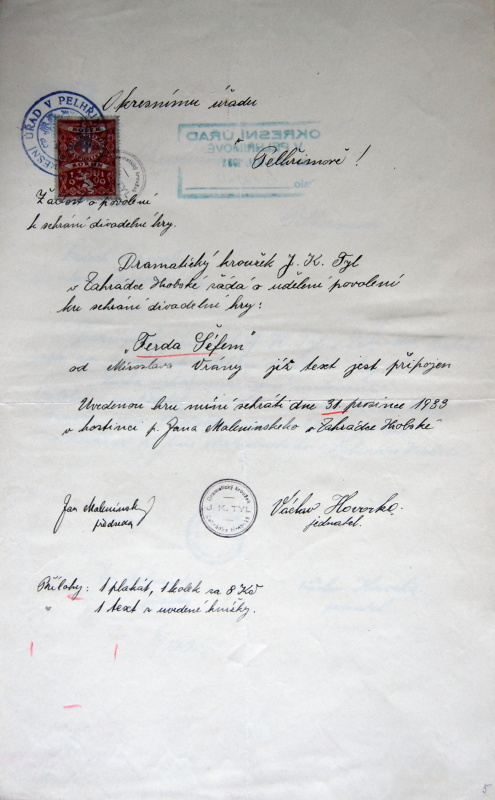 Okresnímu úřadu
v
Pelhřimově!
OKRESNÍ ÚŘAD
V PELHŘIMOVĚ
Žádost o povolení
k sehrání divadelní hry.
Dramatický kroužek J. K. Tyl
v Zahrádce Hrobské žádá o udělení povolení
ku sehrání divadelní hry:
„Ferda Šéfem"
od Miroslava Vrány jíž text jest připojen
Uvedenou hru míní sehráti dne 31 prosince 1933
v hostinci p. Jana Maleninskeho v Zahrádce Hrobské
Jan Maleninský
předseda
Dramatický kroužek
J. K. TYL
Václav Hovorka
jednatel.
Přílohy: 1 plakát, 1 kolek za 8 Kč
" 1 text z uvedené hříčky.
5